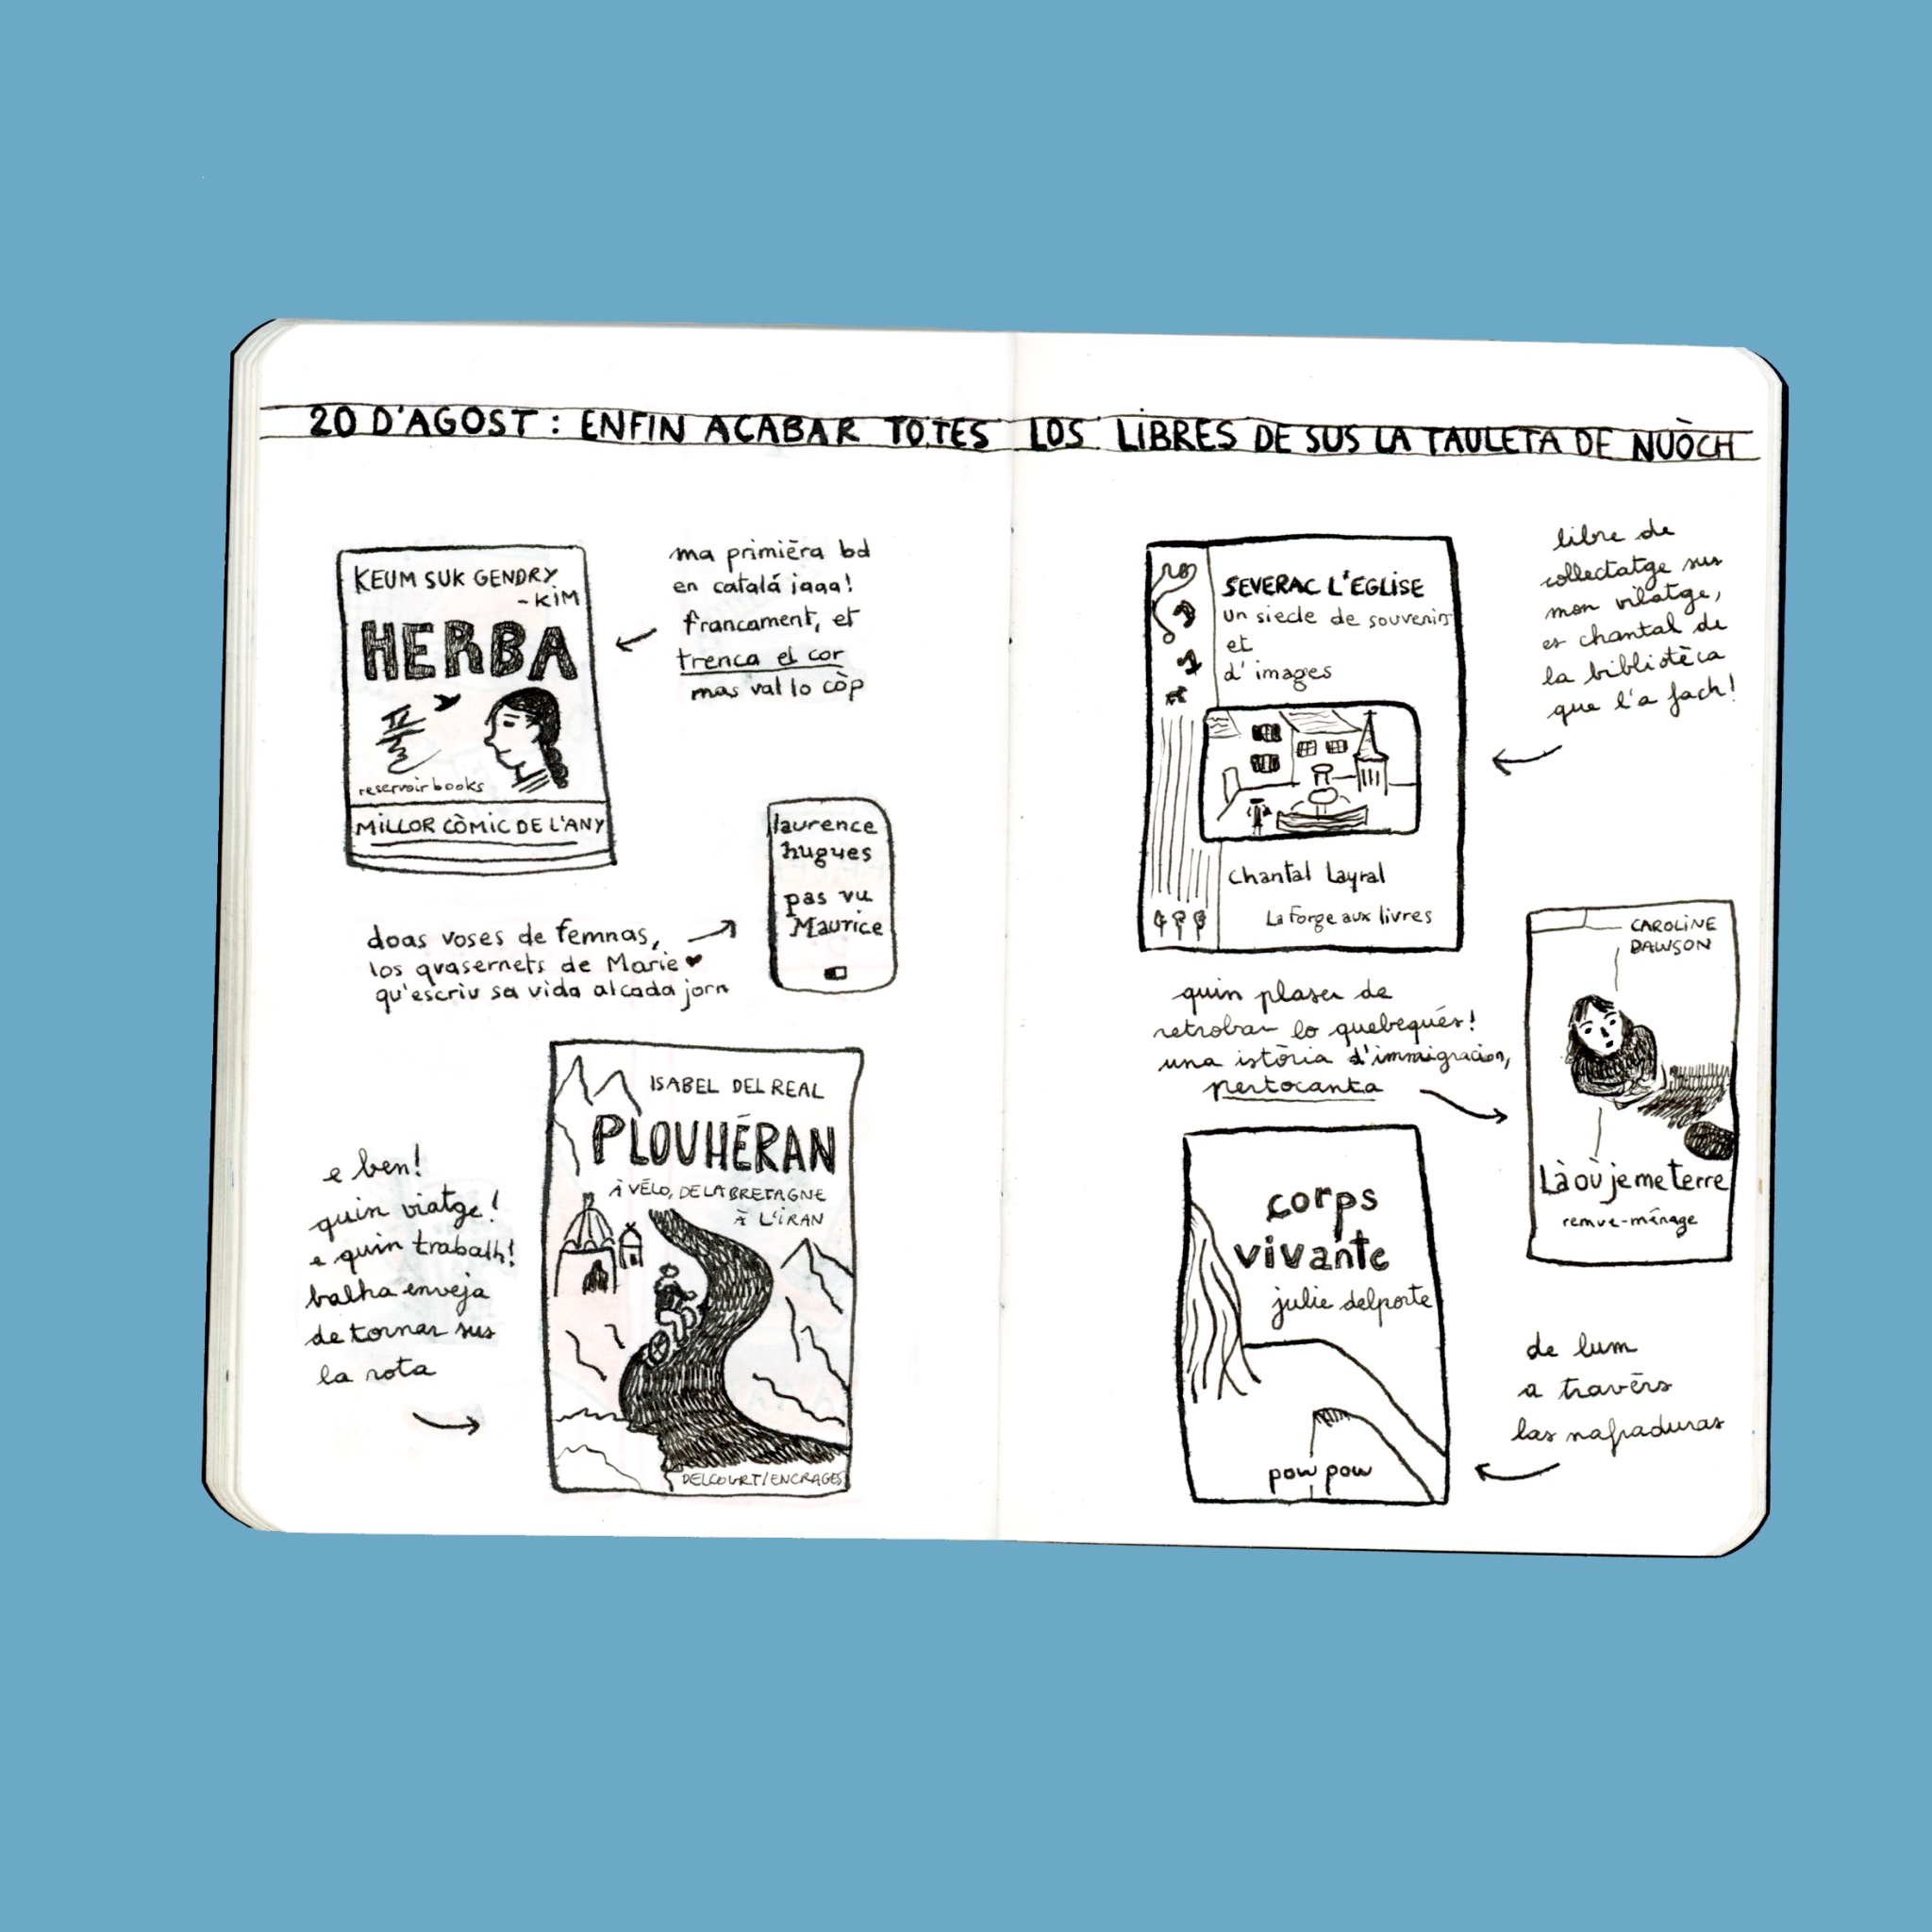 20 D'AGOST : ENFIN ACABAR TOTES LOS LIBRES DE SUS LA TAULETA DE NUÒCH
KEUM SUK GENDRY
- KIM
HERBA
풀
reservoir books
MILLOR CÒMIC DE L'ANY
ma primièra bd
en català jaaa!
francament, et
trenca el cor
mas val lo còp
laurence
hugues
pas vu
Maurice
doas voses de femnas,
los quasernets de Marie ♥
qu'escriu sa vida al cada jorn
ISABEL DEL REAL
PLOUHÉRAN
À VÉLO, DE LA BRETAGNE
À L'IRAN
DELCOURT/ENCRAGES
e ben!
quin viatge!
e quin trabalh!
balha enveja
de tornar sus
la rota
SEVERAC L'EGLISE
un siecle de souvenirs
et
d'images
Chantal Layral
La Forge aux livres
libre de
collectatge sus
mon vilatge,
es chantal de
la bibliotèca
que l'a fach!
CAROLINE
DAWSON
Là où je me terre
remue-ménage
quin plaser de
retrobar lo quebequés!
una istòria d'immigracion,
pertocanta
corps
vivante
julie delporte
pow pow
de lum
a travèrs
las nafraduras